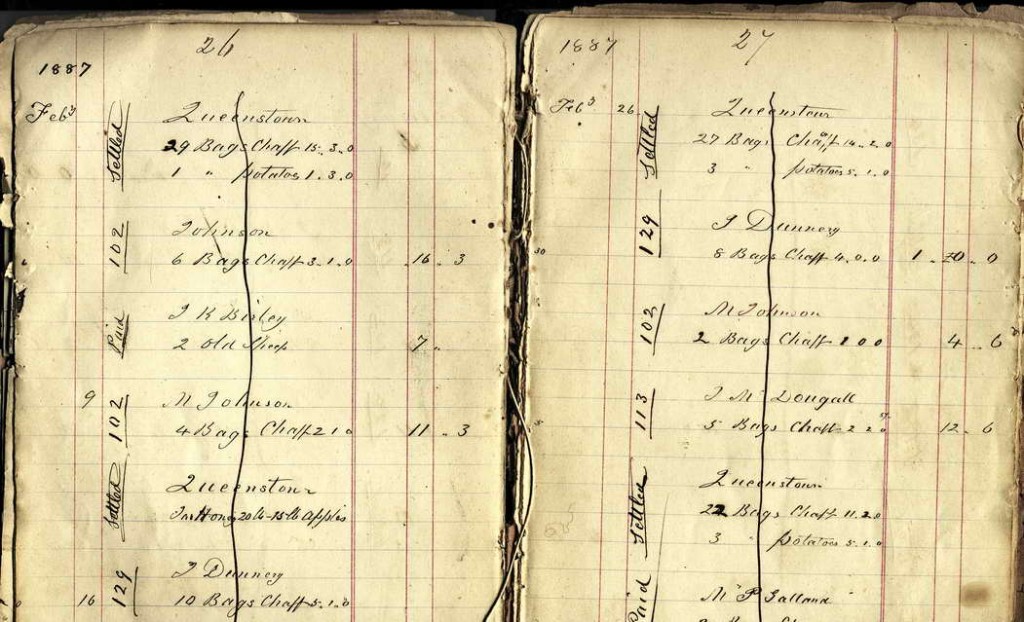 26
1887
Feb 3 Settled Queenstown
29 Bags Chaff 15.3.0
1 " potatoes 1.3.0
102 Johnson
6 Bags Chaff 3.1.0 16.3
Paid J K Birley
2 old Sheep 7
9 102 M Johnson
4 Bags Chaff 2 1 0 11.3
Settled Queenstown
20 lb - 15 lb apples
129 J Dunnery
16 10 Bags Chaff 5.1.0
27
1887
Feb 3 26 Settled Queenstown
27 Bags Chaff 14.2.0
3 " potatoes 5.1.0
129 J Dunnery
8 Bags Chaff 4.0.0 1.0
102 M Johnson
2 Bags Chaff 1 0 0 4.6
113 J McDougall
5 Bags Chaff 2 2 12.6
Settled Queenstown
22 Bags Chaff 11.2.0
3 " potatoes 5.1.0
Paid M P Galland